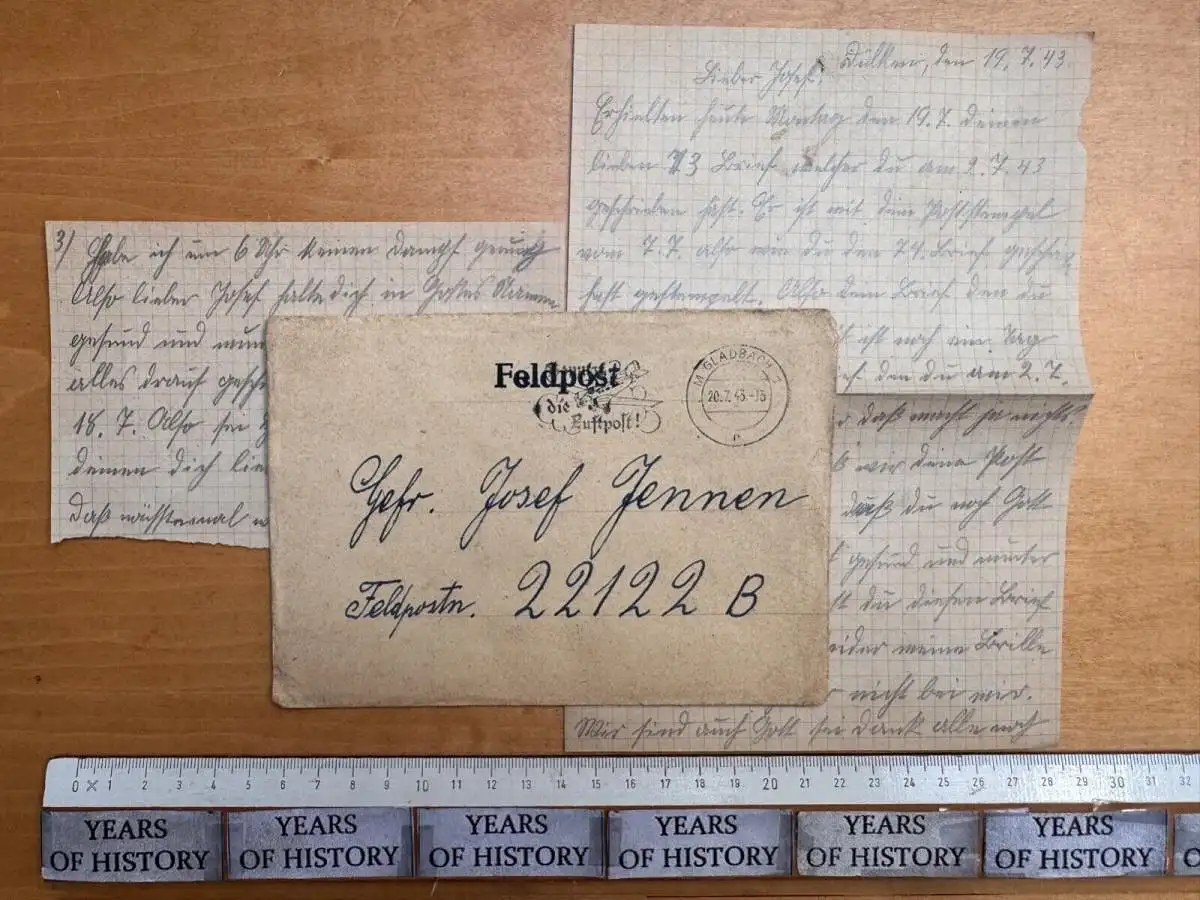 Dülken, den 19. 7. 43.
Lieber Josef,
Erhielten heute Montag den 19. 7. deinen
lieben 73 Brief welcher du am 2. 7. 43
geschrieben hast. Er ist mit dem Poststempel
vom 7. 7. also wie du den 74. Brief geschrie
hast gestempelt. Also dem Brief den du
ist noch ein Tag
den du am 2. 7.
daß macht ja nichts?
wir deine Post
daß du noch Gott
gesund und munter
du diesen Brief
meine Brille
nicht bei mir.
Wir sind auch Gott sei dank alle noch
3) Habe ich um 6 Uhr keinen Dampf genug
Also lieber Josef halte dich in Gottes Namen
gesund und mun
alles drauf gesch
18. 7. Also sei
deinen dich lie
daß nächstemal
Feldpost
die
Luftpost!
M. GLADBACH 1
20. 7. 43. -18
Gefr. Josef Jennen
Feldpostn. 22122 B
0 1 2 3 4 5 6 7 8 9 10 11 12 13 14 15 16 17 18 19 20 21 22 23 24 25 26 27 28 29 30 31 32
YEARS OF HISTORY YEARS OF HISTORY YEARS OF HISTORY YEARS OF HISTORY YEARS OF HISTORY YEARS OF HISTORY